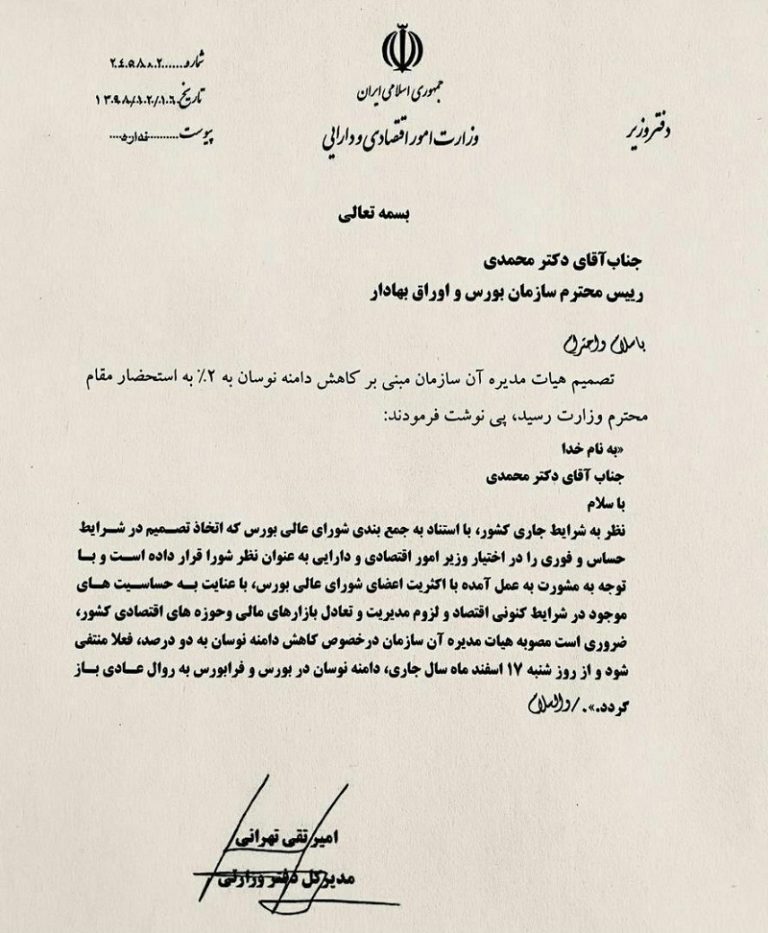 جمهوری اسلامی ایران
وزارت امور اقتصادی و دارایی
دفتر وزیر
شماره......۲۴۵۸۸۰۲
تاریخ.۱۳۹۸/۱۲/۱۶
پیوست..........ندارد....
بسمه تعالی
جناب‌آقای دکتر محمدی
رییس محترم سازمان بورس و اوراق بهادار
باسلام و احترام
تصمیم هیات مدیره آن سازمان مبنی بر کاهش دامنه نوسان به ۲٪ به استحضار مقام
محترم وزارت رسید، پی نوشت فرمودند:
«به نام خدا
جناب آقای دکتر محمدی
با سلام
نظر به شرایط جاری کشور، با استناد به جمع بندی شورای عالی بورس که اتخاذ تصمیم در شرایط
حساس و فوری را در اختیار وزیر امور اقتصادی و دارایی به عنوان نظر شورا قرار داده است و با
توجه به مشورت به عمل آمده با اکثریت اعضای شورای عالی بورس، با عنایت به حساسیت های
موجود در شرایط کنونی اقتصاد و لزوم مدیریت و تعادل بازارهای مالی وحوزه های اقتصادی کشور،
ضروری است مصوبه هیات مدیره آن سازمان درخصوص کاهش دامنه نوسان به دو درصد، فعلا منتفی
شود و از روز شنبه ۱۷ اسفند ماه سال جاری، دامنه نوسان در بورس و فرابورس به روال عادی باز
گردد.»./والسلام
امیر تقی تهرانی
مدیرکل دفتر وزارتی